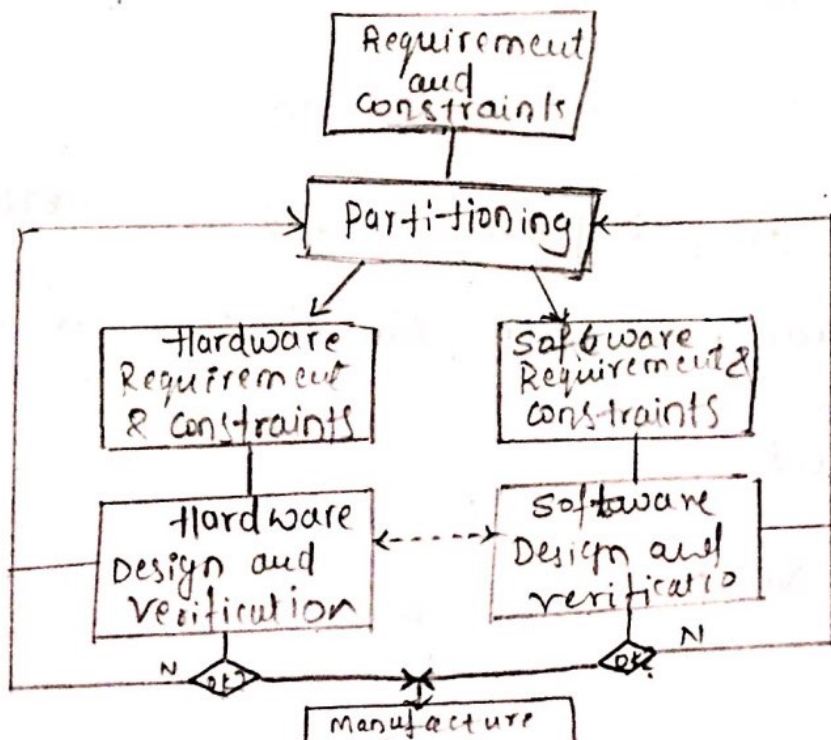 Requirement
and
constraints
Partitioning
Hardware
Requirement
& constraints
Software
Requirement &
constraints
Hardware
Design and
Verification
Software
Design and
verificatio
N
ok?
ok?
N
Manufacture